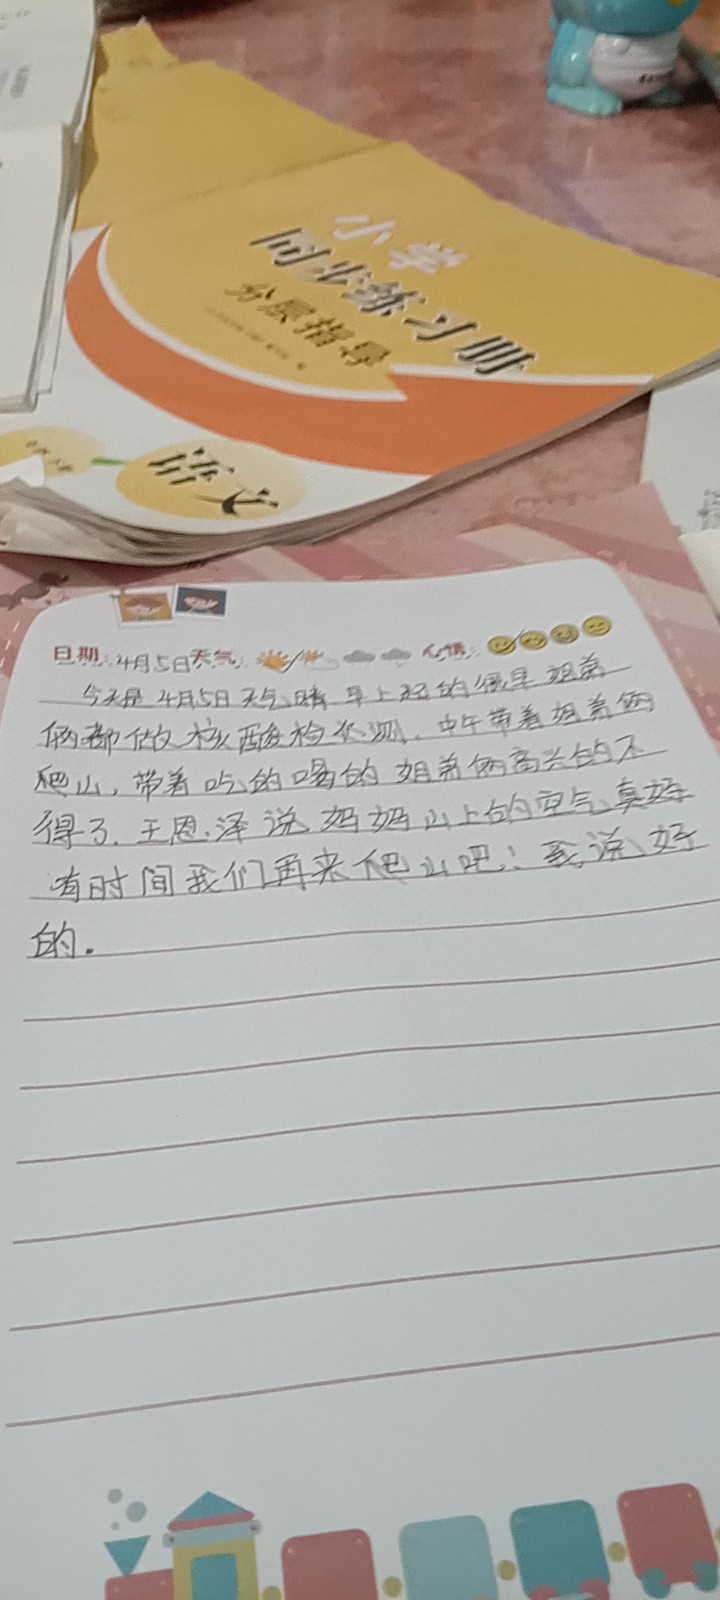 小学
同步练习册
分层指导
语文
日期:4月5日天气: 心情:
今天是4月5日天气晴早上起的很早姐弟
俩都做核酸检测.中午带着姐弟俩
爬山,带着吃的喝的姐弟俩高兴的不
得了.王恩泽说妈妈山上的空气真好
有时间我们再来爬山吧!我说好
的.